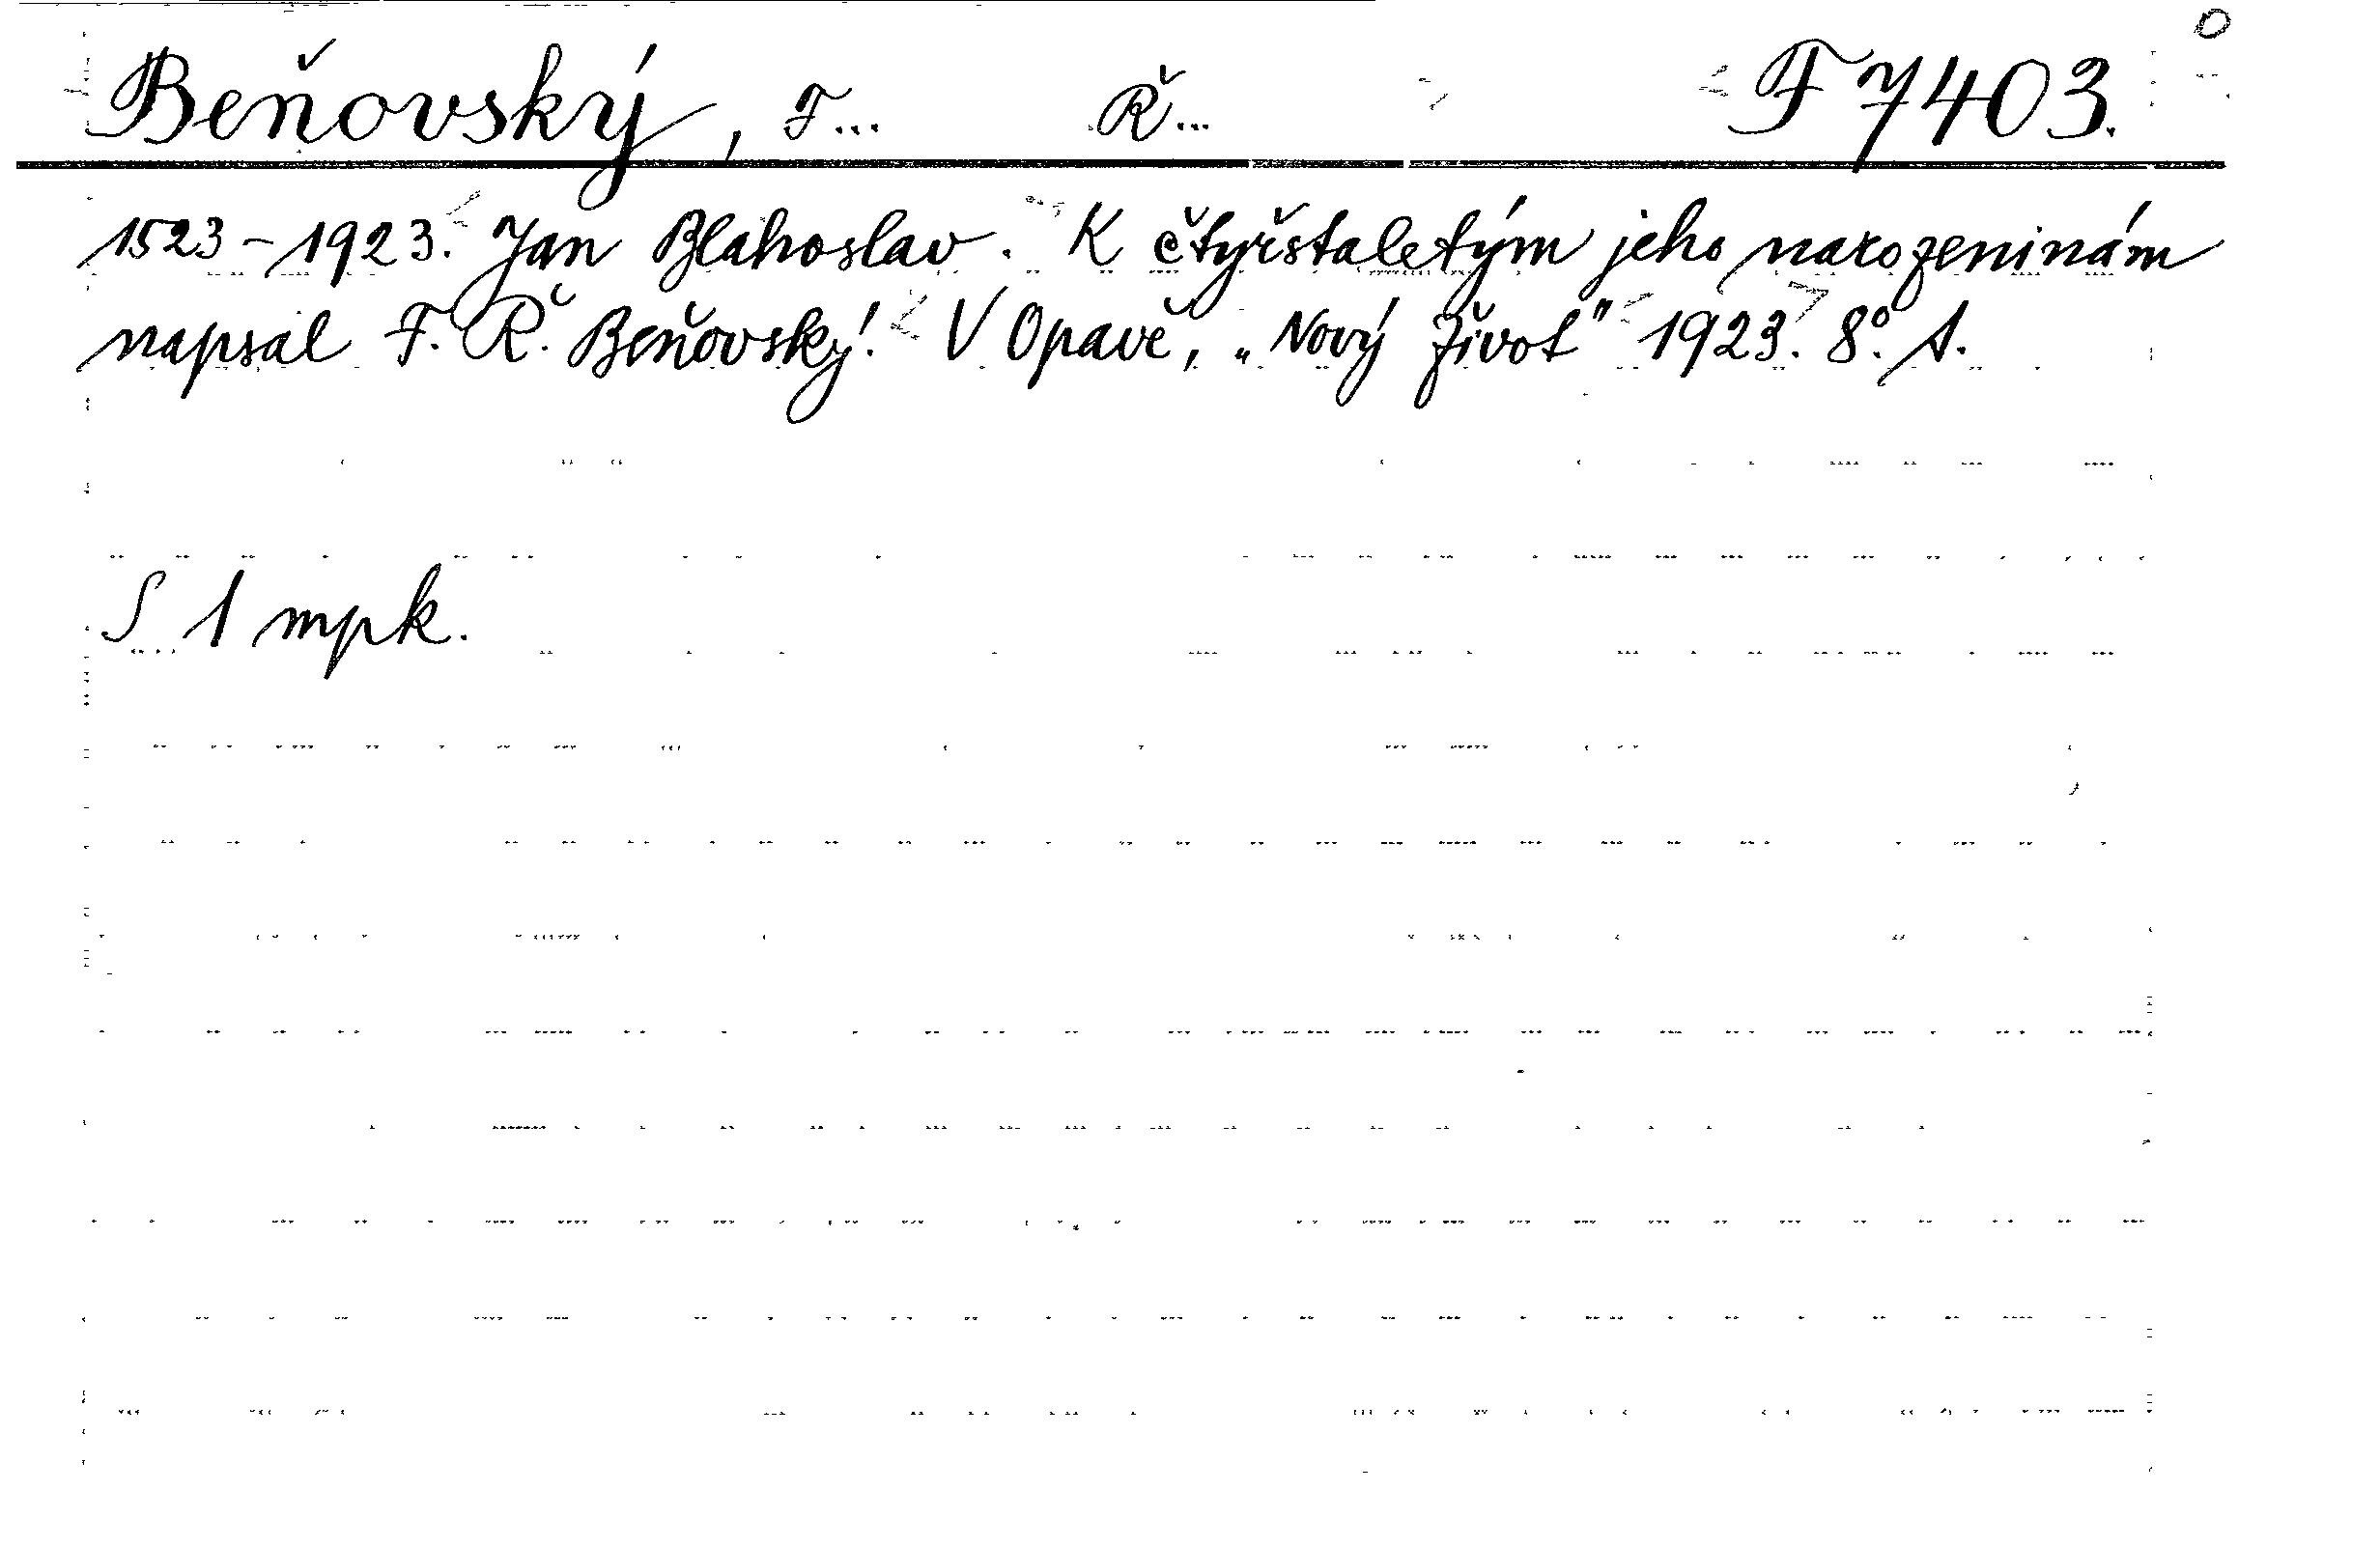 Beňovský, F... Ř... F 7403.
1523-1923. Jan Blahoslav. K čtyřstaletým jeho narozeninám
napsal F. Ř. Beňovský. V Opavě, „Nový život" 1923. 8°. 1.
S 1 mpk.